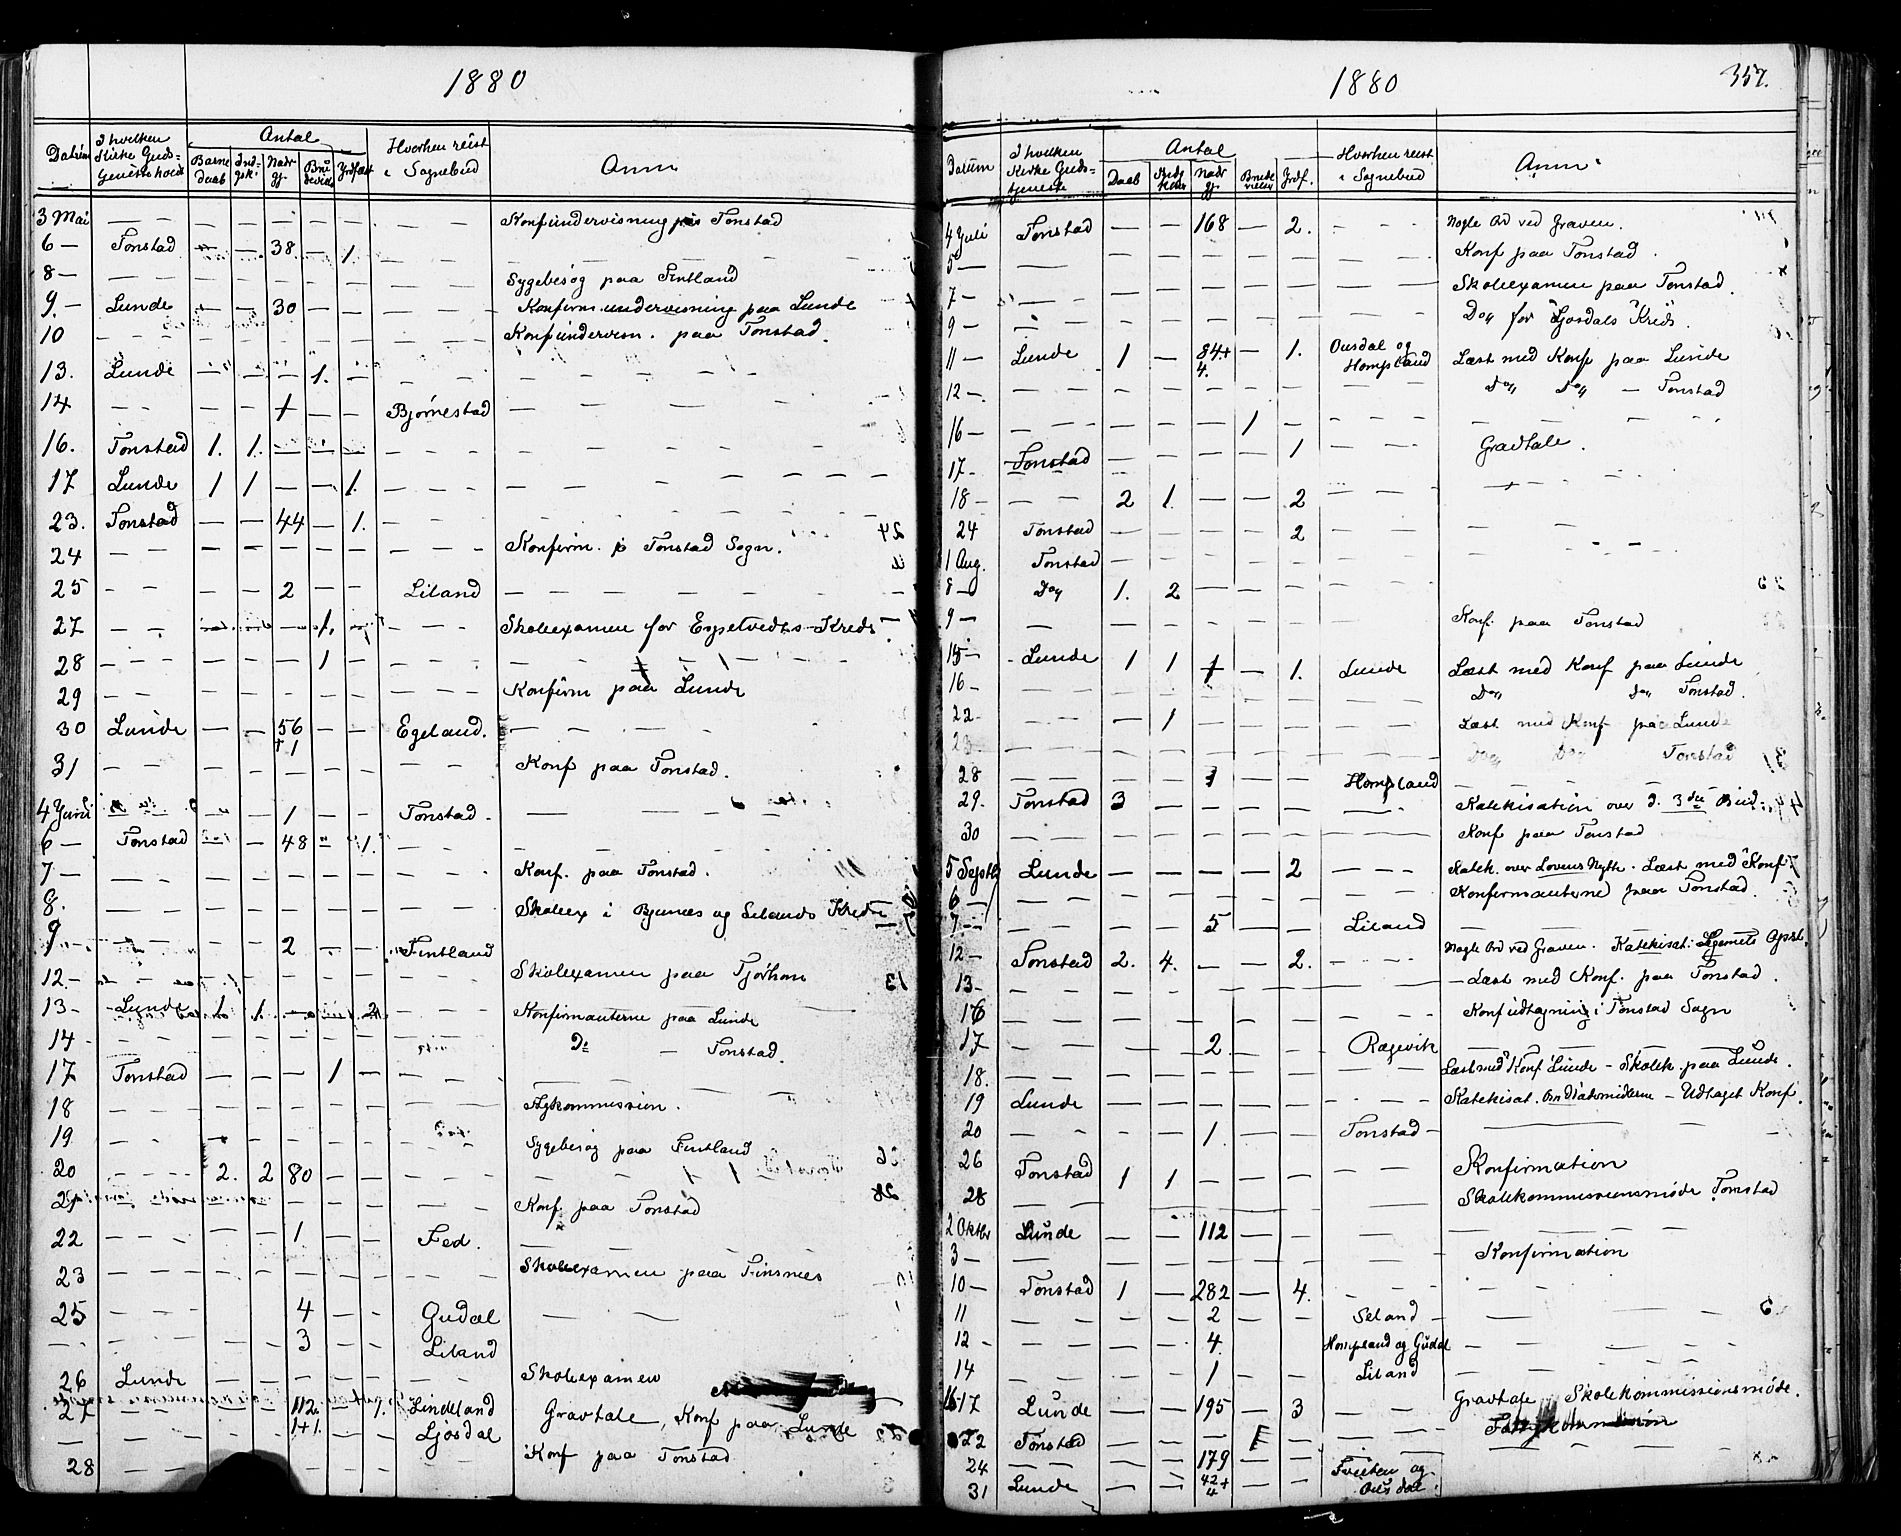 1880
Datum I hvilken Kirke Guds- Antal Hvorhen reist i Sognebud Anm
Barne daab Nadv gj.
3 Mai — — — — — Konfundervisning paa Tonstad
6 — Tonstad — — 38 — 1.
8 — — — Sygebesøg paa Fintland
9. — Lunde — — 30 — — Konfirm. undervisning paa Lunde
10 — — Konfundervisn. paa Tonstad.
13. Lunde — — 1. —
14 — — 1 — — Bjørnestad —
16. Tonstad 1. 1. — — —
17 Lunde 1 1 — — 1. — —
23. Tonstad — — 44 — 1. —
24 — — Konfirm. i Tonstad Sogn.
25 — — 2 — — Liland —
27 — — 1. — Skoleexamen for Espetvedts Kreds
28 — — 1 — —
29 — — Konfirm paa Lunde
30 Lunde — — 56 + 1 — — Egeland. —
31 — — Konf paa Tonstad.
4 Juni — 1 — — Tonstad. —
6 — Tonstad — 48 1. —
7 — — Konf. paa Tonstad.
8. — — Skoleex i Bjunes og Selands Kredse
9 — — 2 — — Fintland
12 — — Skolexamen paa Tjørhom
13 — Lunde 1. 1. — — 2 — Konfirmanterne paa Lunde
14 — — Do — Tonstad.
17 Tonstad — — — 1 — —
18 — — kommission.
19 — — Sygebesøg paa Fintland
20 — 2. 2 80 — —
21 — Konf. paa Tonstad
22 — — 1 — Fed. —
23 — — Skoleexamen paa Finsnes
25 — — 4 — — Gudal —
— — 3 — Liland
26 Lunde — Skolexamen
27 — — 112. 1+1. — 1. Lindeland Ljosdal Gravtale, Konf paa Lunde
28 — — Konf paa Tonstad
1880 357.
Datum I hvilken Kirke Guds- tjeneste Antal Hvorhen reist i Sognebud Anm
Daab Nadv gj. Jrdf.
4 Juli Tonstad — — 168 — 2. — Nogle Ord ved Graven.
5 — — Konf paa Tonstad.
7 — — Skolexamen paa Tonstad.
9 — — Do for Ljosdals Kreds.
11 — Lunde 1 — 84+ 4. — 1. Ousdal og Hompland Læst med Konf paa Lunde
12 — — Do Do — Tonstad
16 — — 1
17 — Tonstad — — 1 — Gravtale.
18 — — 2 1. — — 2 —
24 Tonstad — — 2 —
1 Aug. Tonstad —
8 — Do 1. 2 — —
9 — — Konf. paa Tonstad
15 — Lunde 1 1 1 — 1. Lunde Læst med Konf paa Lunde
16 — — Do Do Tonstad.
22 — — 1 — Læst med Konf paa Lunde
23 — — Do Do Tonstad
28 — — 1 — — Hompland —
29. Tonstad 3 — — Katekisation over d. 3die Bud.
30 — — Konf paa Tonstad
5 Septb Lunde — — — — 2 — Katek. over Lovens Nytte. Læst med Konf
6 — — Konfirmanterne paa Tonstad.
7 — — 5 — Liland —
12 — Tonstad 2. 4. — — 2. — Nogle Ord ved Graven. Katekisat: Legemets Opst.
13 — — Læst med Konf. paa Tonstad.
16 — — Konfudtagning i Tonstad Sogn
17 — — 2. — Rægevik —
18. — — Læst med Konf Lunde — Skolek. paa Lunde.
19 Lunde — — Katekisat. om Naademidlerne — Udtaget Konf.
20 — — 1. — — Tonstad —
26 Tonstad 1 1 — — Konfirmation
28 — — Skolekommissionsmøde Tonstad
2 Oktbr Lunde — — 112 — —
3 — — Konfirmation
10 — Tonstad 1 — 282 — 4. —
11 — 2 — — Seland —
12 — — 4. — Hompland og Gudal —
14 — 1 — — Liland —
17 Lunde — — 195 — 3 — Gravtale Skolekommissionsmøde.
22 Tonstad — —
24 — — 179 — —
31 Lunde — — 42+ 4 — — og Ousdal.